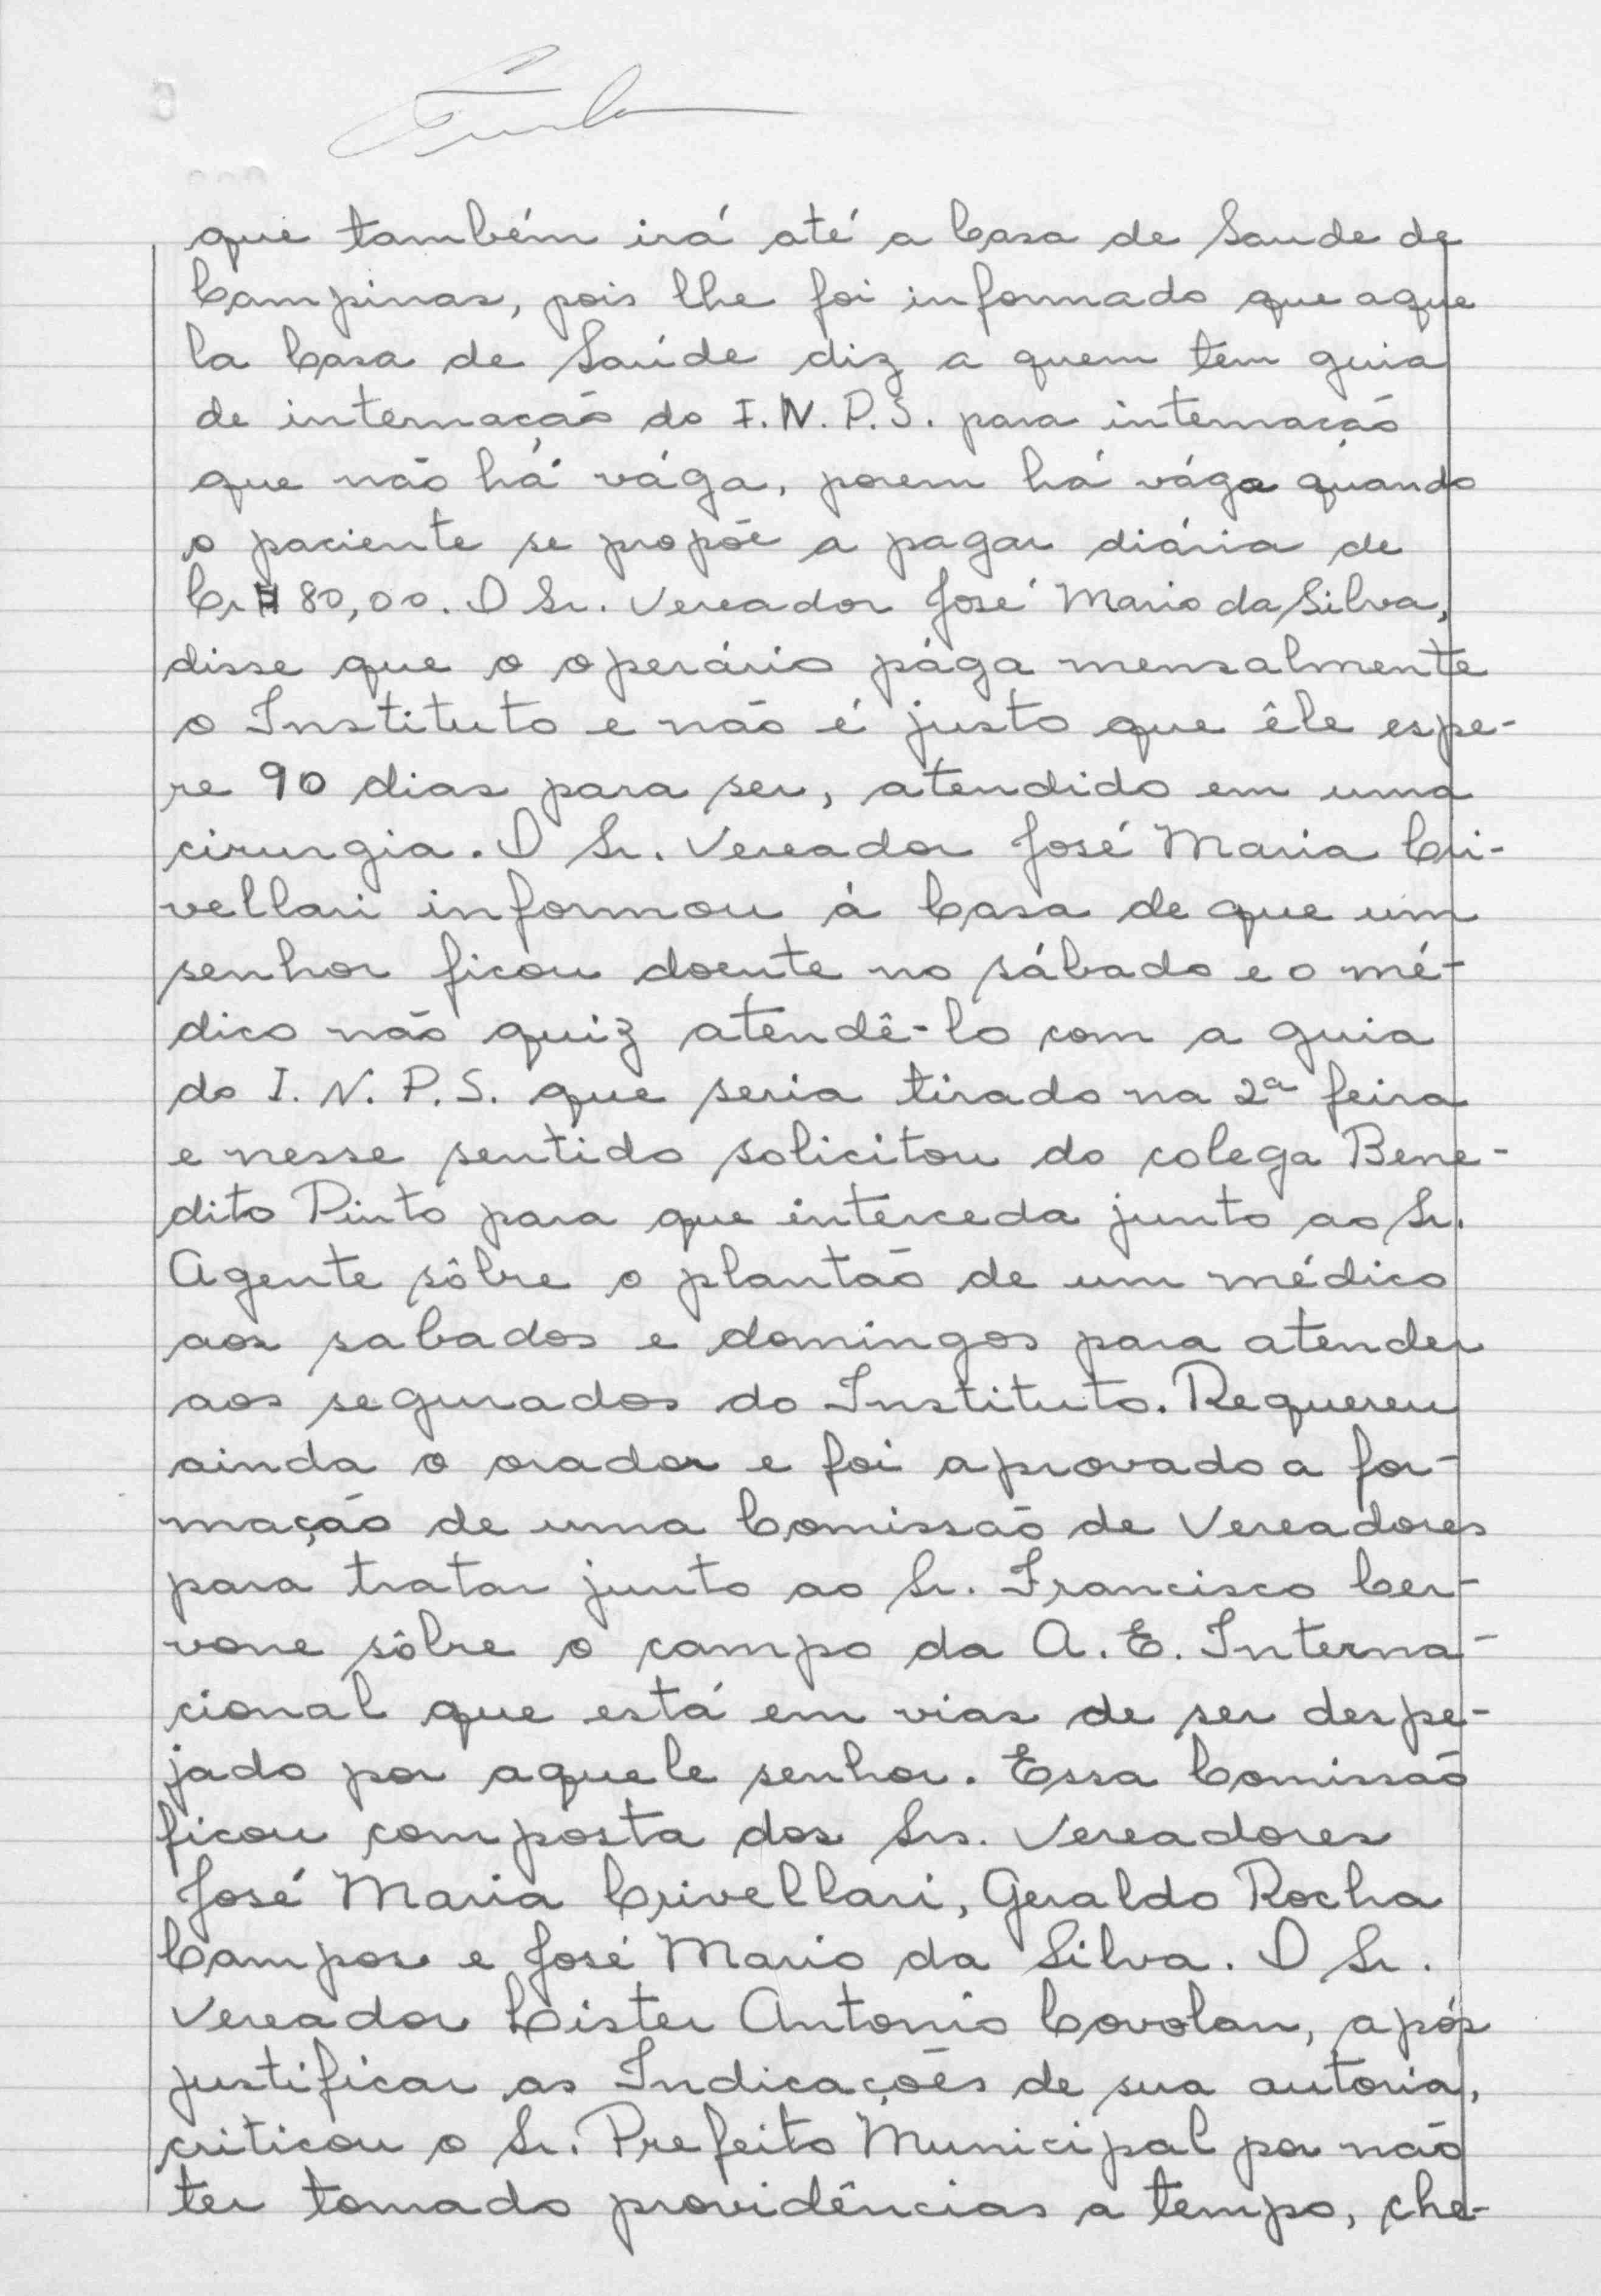 que também irá até a Casa de Saude de
Campinas, pois lhe foi informado que aque
la Casa de Saúde diz a quem tem guia
de internação do I.N.P.S. para internação
que não há vága, porem há vága quando
o paciente se propõe a pagar diária de
Cr$ 80,00. O Sr. Vereador José Mario da Silva,
disse que o operário pága mensalmente
o Instituto e não é justo que êle espe-
re 90 dias para ser, atendido em uma
cirurgia. O Sr. Vereador José Maria Cri-
vellari informou á Casa de que um
senhor ficou doente no sábado e o mé-
dico não quiz atendê-lo com a guia
do I.N.P.S. que seria tirado na 2ª feira
e nesse sentido solicitou do colega Bene-
dito Pinto para que interceda junto ao Sr.
Agente sôbre o plantão de um médico
aos sabados e domingos para atender
aos segurados do Instituto. Requereu
ainda o orador e foi aprovado a for-
mação de uma Comissão de Vereadores
para tratar junto ao Sr. Francisco Cer-
vone sôbre o campo da A.E. Interna-
cional que está em vias de ser despe-
jado por aquele senhor. Essa Comissão
ficou composta dos Srs. Vereadores
José Maria Crivellari, Geraldo Rocha
Campos e José Mario da Silva. O Sr.
Vereador Lister Antonio Covolan, após
justificar as Indicações de sua autoria,
criticou o Sr. Prefeito Municipal por não
ter tomado providências a tempo, che-